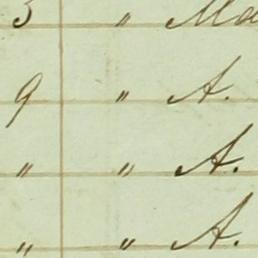 3 " Ma
9 " A.
" " A.
" " A.